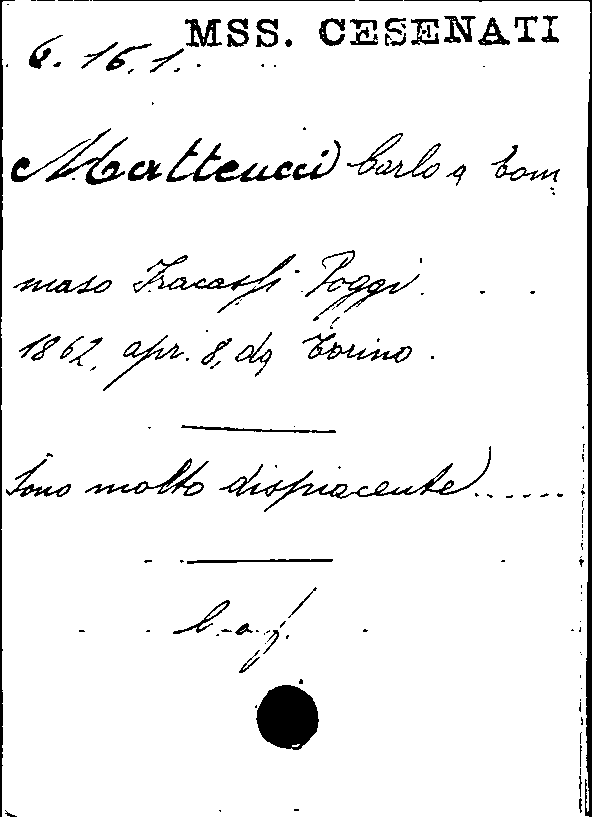 MSS. CESENATI
6. 16. 1.
Matteucci Carlo a Tom
maso Fracassi Poggi . . .
1862, apr. 8, da Torino.
Sono molto dispiacente ......
C. a. f.